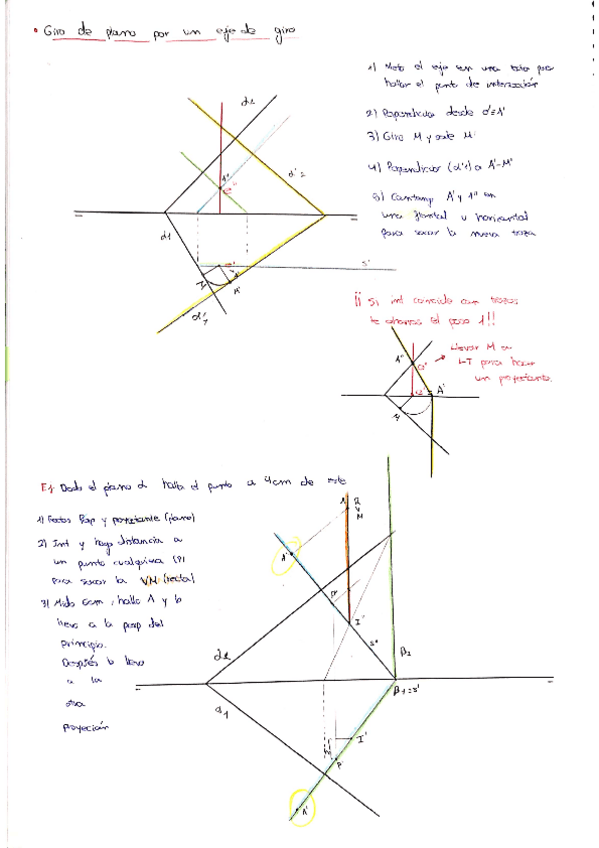 • Giro de plano por un eje de giro
1) Meto el eje en una traza para
hallar el punto de intersección
2) Perpendicular desde e'≡A'
3) Giro M y sale M'
4) Perpendicular (α'1) a A'-M'
5) Contengo A' y A'' en
una frontal u horizontal
para sacar la nueva traza
α2
α'2
A''
e''
α1
e'
s'
M
M'
α'1
¡¡ Si int coincide con trazas
te ahorras el paso 1!!
Llevar M a
LT para hacer
un proyectante.
A''
e''
e'
A'
M
Ej Dado el plano α halla el punto a 4cm de este
1) Rectas Perp y proyectante (plano)
2) Int y hago distancia a
un punto cualquiera (P)
para sacar la VM (recta)
3) Mido 4cm, hallo A y lo
llevo a la perp del
principio.
Después lo llevo
a la
otra
proyección
A''
P''
I''
s''
α2
β2
β1≡s'
α1
I'
P'
A'